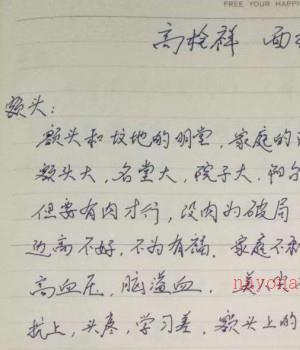 FREE YOUR HAPPY
高栓祥 面
额头:
额头和坟地的明堂,家庭的
额头大,名堂大,院子大,
但要有肉才行,没肉为破局
边高不好,不为有福.家庭不和
高血压,脑溢血.
抗上,头疼,学习差,额头上的
nayona